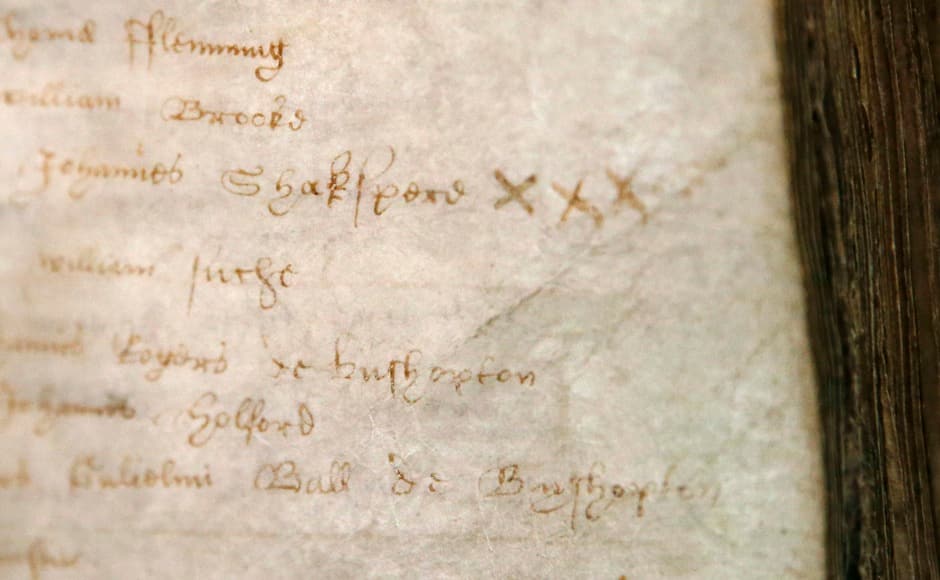 fflemming
william Brooke
Johannes Shakspere X X X
william suche
Rogers de bushopton
Johannis Holford
Gulielmi Ball de Bushopton